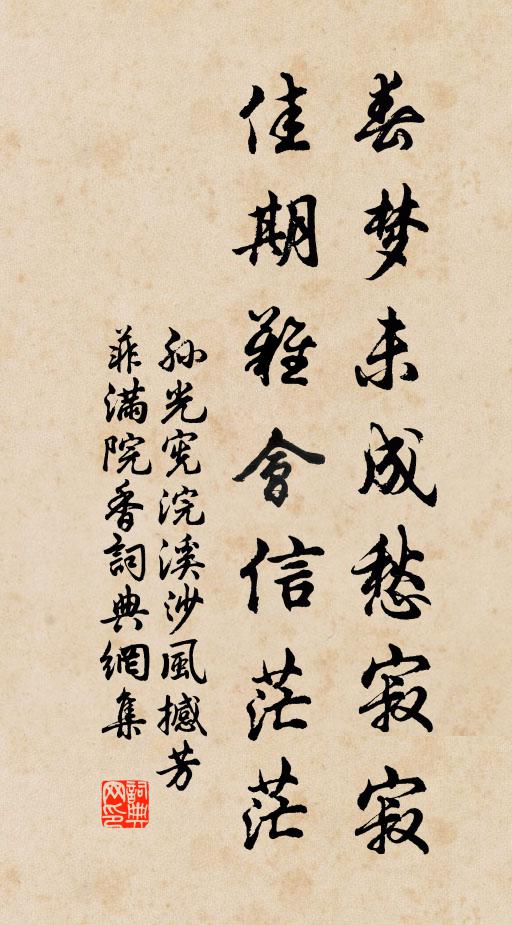 春梦未成愁寂寂
佳期難會信茫茫
孙光宪浣溪沙風撼芳
菲满院香詞典網集
詞典网印